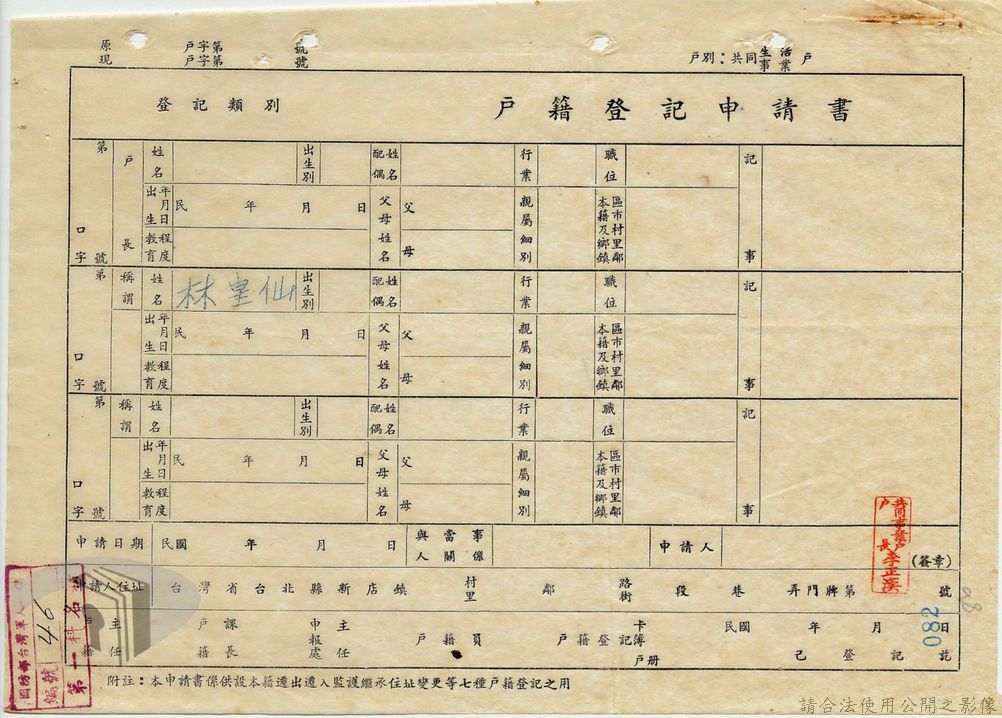 原 戶字第 號
現 戶字第 號
戶別：共同生活事業戶
登記類別 戶籍登記申請書
第 口 號 字
戶長 姓名 出生別 配偶姓名 行業 職位 記事
出生年月日 民 年 月 日 父母姓名 父 母 親屬細別 本籍及鄉鎮區市村里鄰
教育程度
第 口 號 字
稱謂 姓名 林寔仙 出生別 配偶姓名 行業 職位 記事
出生年月日 民 年 月 日 父母姓名 父 母 親屬細別 本籍及鄉鎮區市村里鄰
教育程度
第 口 號 字
稱謂 姓名 出生別 配偶姓名 行業 職位 記事
出生年月日 民 年 月 日 父母姓名 父 母 親屬細別 本籍及鄉鎮區市村里鄰
教育程度
申請日期 民國 年 月 日 與當事人關係 申請人 (簽章)
共同事業戶
戶長
申請人住址 台灣省台北縣新店鎮 村里 鄰 路街 段 巷 弄門牌第 號
戶籍主任 戶籍課長 申報處主任 戶籍員 戶籍登記卡簿戶册 民國 年 月 日 已登記訖
082
編號 46
第一科
附註：本申請書係供設本籍遷出遷入監護繼承住址變更等七種戶籍登記之用
請合法使用公開之影像